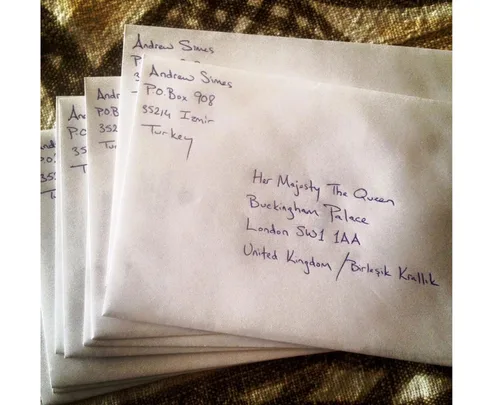 Andrew Simes
P
3
Andrew Simes
P.O.Box 908
35214 Izmir
Turkey
Her Majesty The Queen
Buckingham Palace
London SW1 1AA
United Kingdom / Birleşik Krallık
Andr
P.O.B
352
Tur
An
P.C
35
T